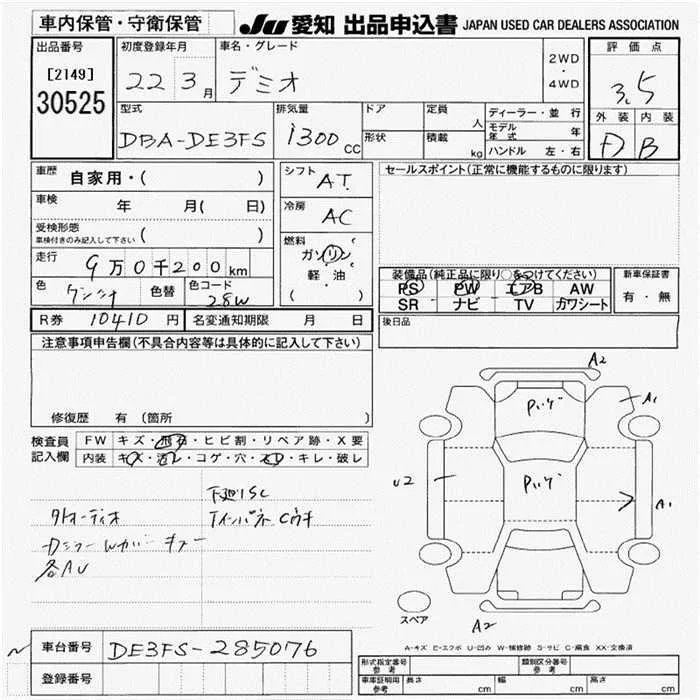 車内保管・守衛保管
JU 愛知 出品申込書 JAPAN USED CAR DEALERS ASSOCIATION
出品番号
[2149]
30525
初度登録年月
22 3月
車名・グレード
デミオ
2WD
・
4WD
評価点
3.5
外装 内装
D B
型式
DBA-DE3FS
排気量
1300 CC
ドア
形状
定員 人
積載 kg
ディーラー・並行
モデル年式 年
ハンドル 左・右
車歴 自家用・( )
車検 年 月( 日)
受検形態
車検付きのみ記入して下さい ( )
走行 9万0千200km
色
色替
色コード
28W
シフト AT
冷房 AC
燃料
ガソリン
軽・油
( )
セールスポイント(正常に機能するものに限ります)
装備品(純正品に限り○をつけてください)
PS PW エアB AW
SR ナビ TV カワシート
新車保証書
有・無
R券 10410円 名変通知期限 月 日
後日品
注意事項申告欄(不具合内容等は具体的に記入して下さい)
修復歴 有 (箇所 )
検査員記入欄
FW キズ・飛石・ヒビ割・リペア跡・X要
内装 キズ・汚レ・コゲ・穴・スレ・キレ・破レ
下廻リSC
外オーディオ
各AU
A2
A1
U2
A1
A2
スペア
A-キズ E-エクボ U-凹み W-補修跡 S-サビ C-腐食 XX-交換済
車台番号 DE3FS-285076
登録番号
形式指定番号 参考
類別区分番号 参考
車庫証明用 参考 長さ cm 幅 cm 高さ cm